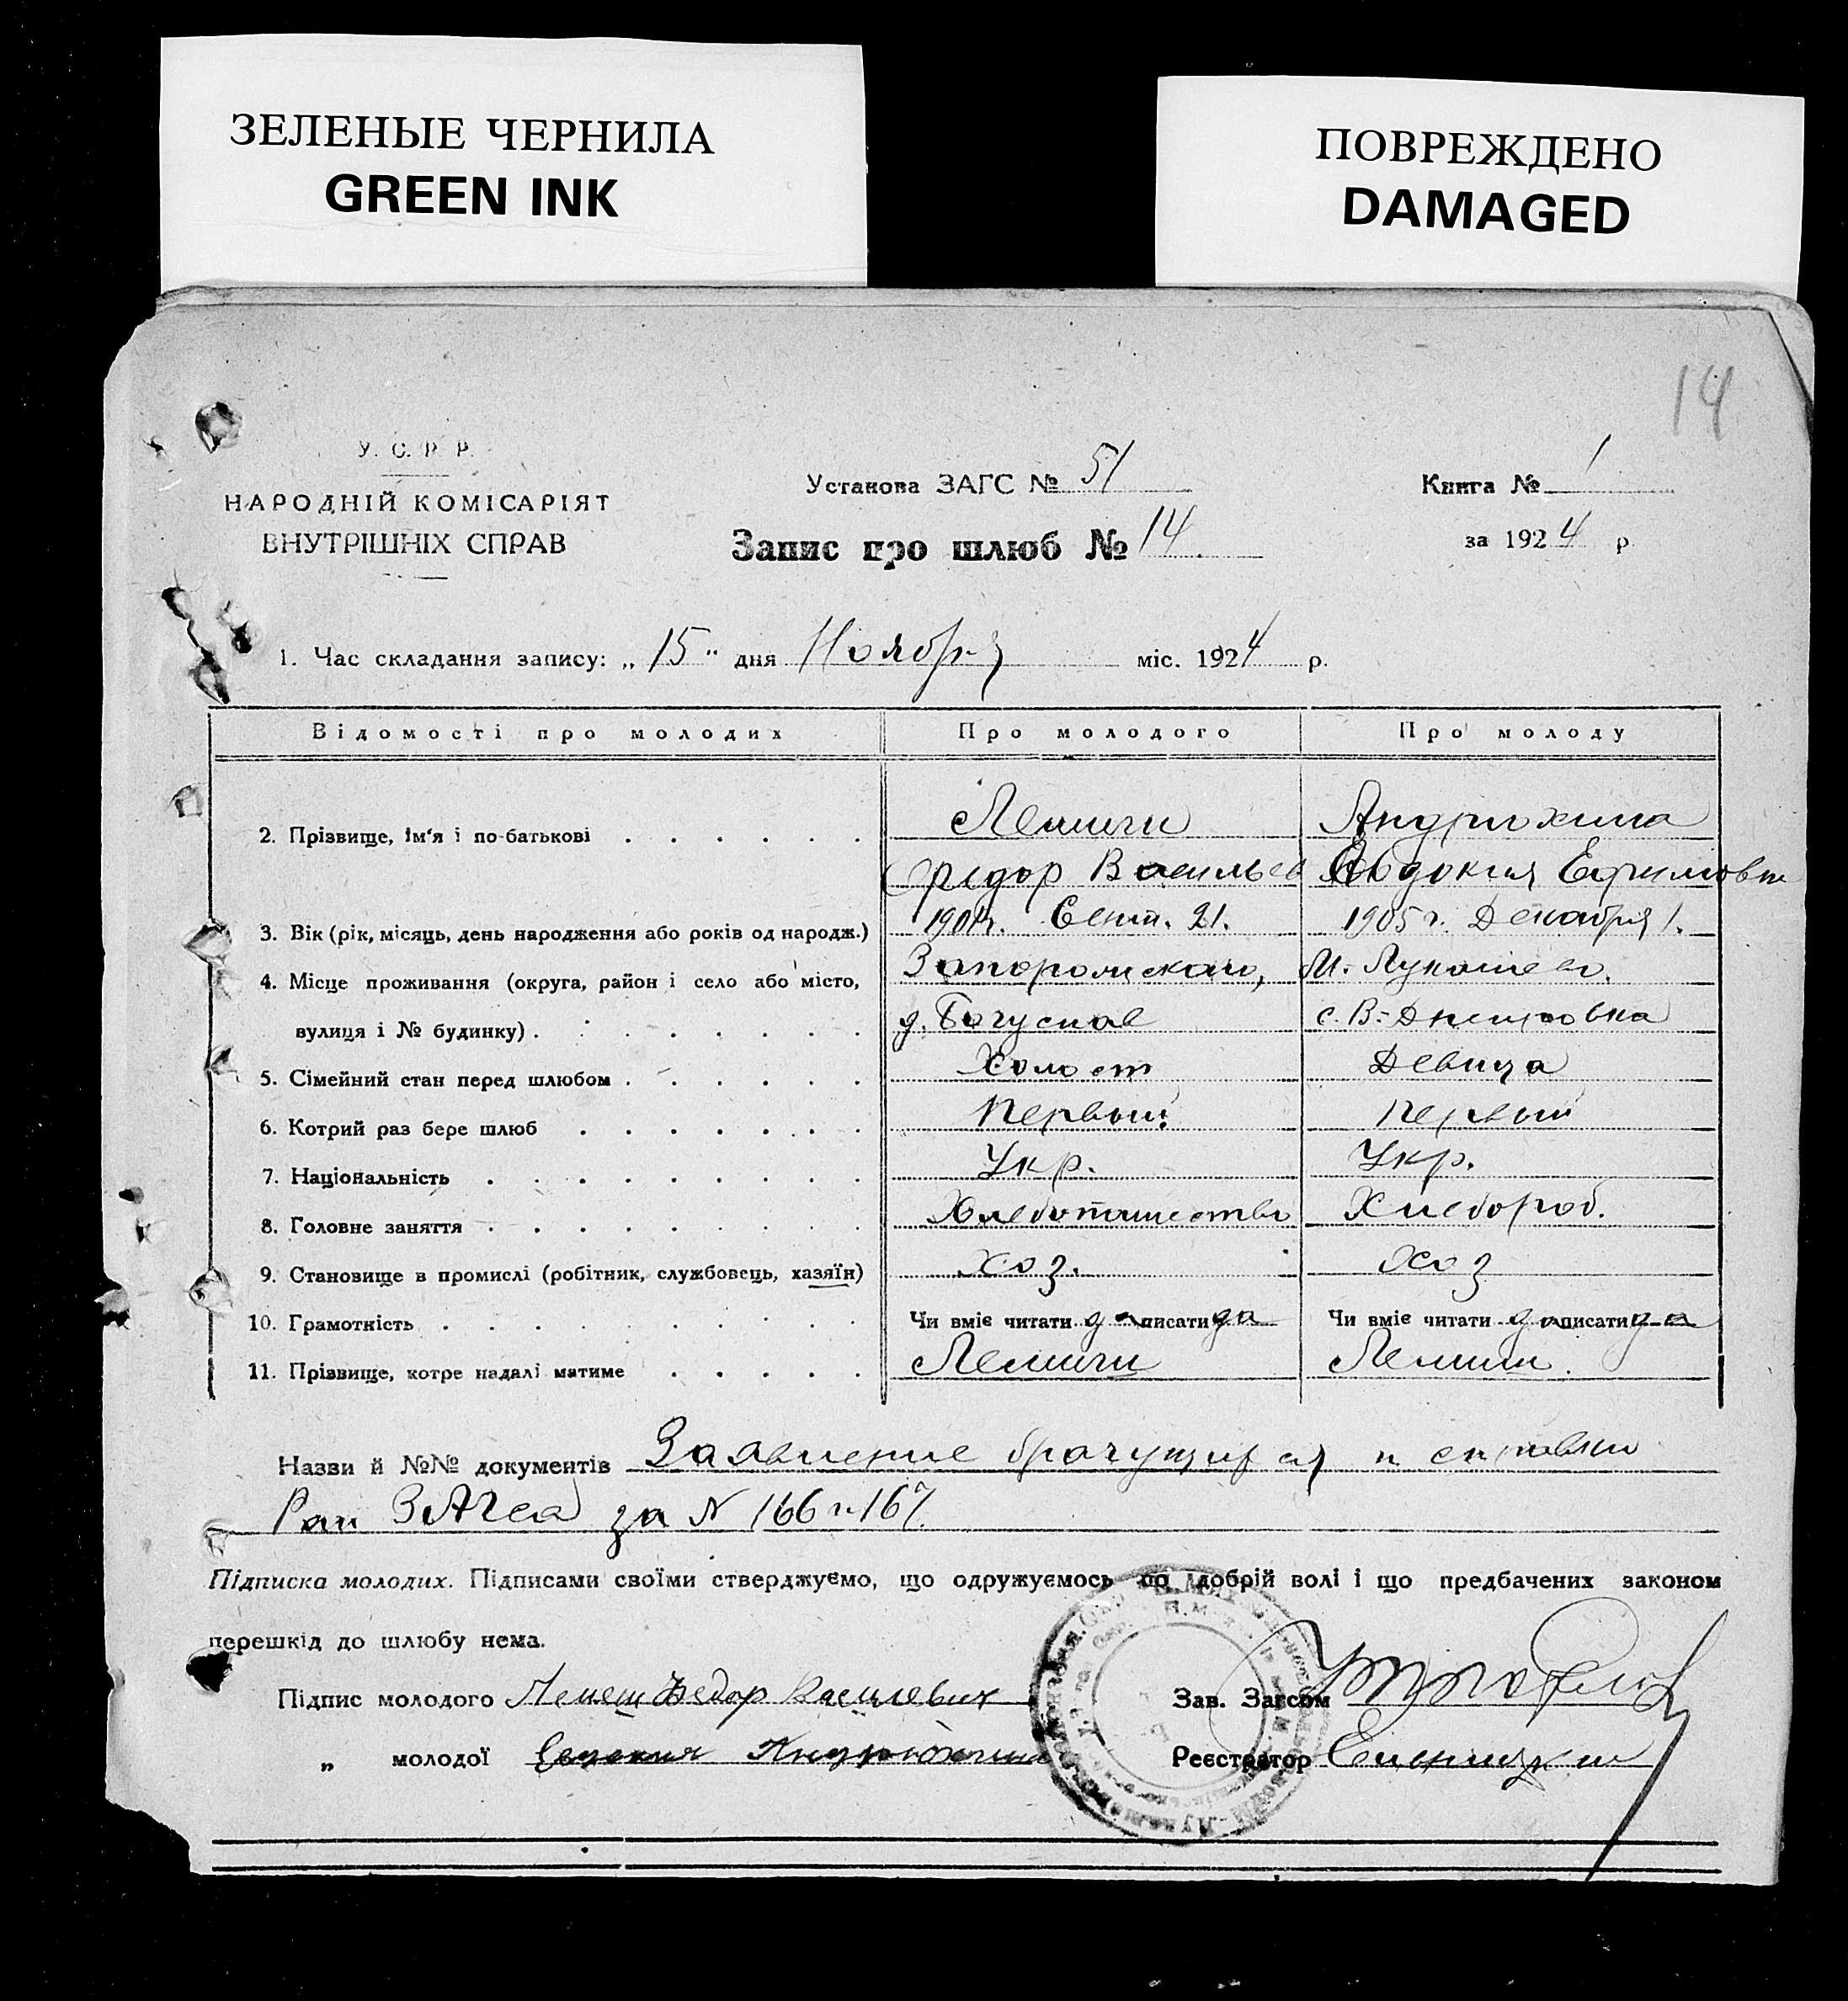 ЗЕЛЕНЫЕ ЧЕРНИЛА
GREEN INK
ПОВРЕЖДЕНО
DAMAGED
14
У. С. Р. Р.
НАРОДНІЙ КОМІСАРІЯТ
ВНУТРІШНІХ СПРАВ
Установа ЗАГС № 51
Книга № 1
Запис про шлюб № 14
за 1924 р.
1. Час складання запису: „15" дня Ноября міс. 1924 р.
Відомості про молодих Про молодого Про молоду
2. Прізвище, ім'я і по-батькові Андрюхина
Федор Васильев Авдокия Ефимовн
3. Вік (рік, місяць, день народження або років од народж.) Сент. 21. 1905 г. Декабря 1.
4. Місце проживання (округа, район і село або місто, Запорожского, М.-Лукашево.
вулиця і № будинку) д. Богуслав с. В.-
5. Сімейний стан перед шлюбом Холост Девица
6. Котрий раз бере шлюб Первый Первый
7. Національність Укр. Укр.
8. Головне заняття Хлебопашество Хлебороб.
9. Становище в промислі (робітник, службовець, хазяїн) хоз. хоз
10. Грамотність Чи вміє читати да писати да Чи вміє читати да писати да
11. Прізвище, котре надалі матиме
Назви й №№ документів Заявление брачущихся и справки
Рай ЗАГСа за N 166 и 167.
Підписка молодих. Підписами своїми стверджуємо, що одружуємось по добрій волі і що предбачених законом
перешкід до шлюбу нема.
Підпис молодого Федор Василевич
Зав. Загсом
„ молодої Андрюхина
Реєстратор